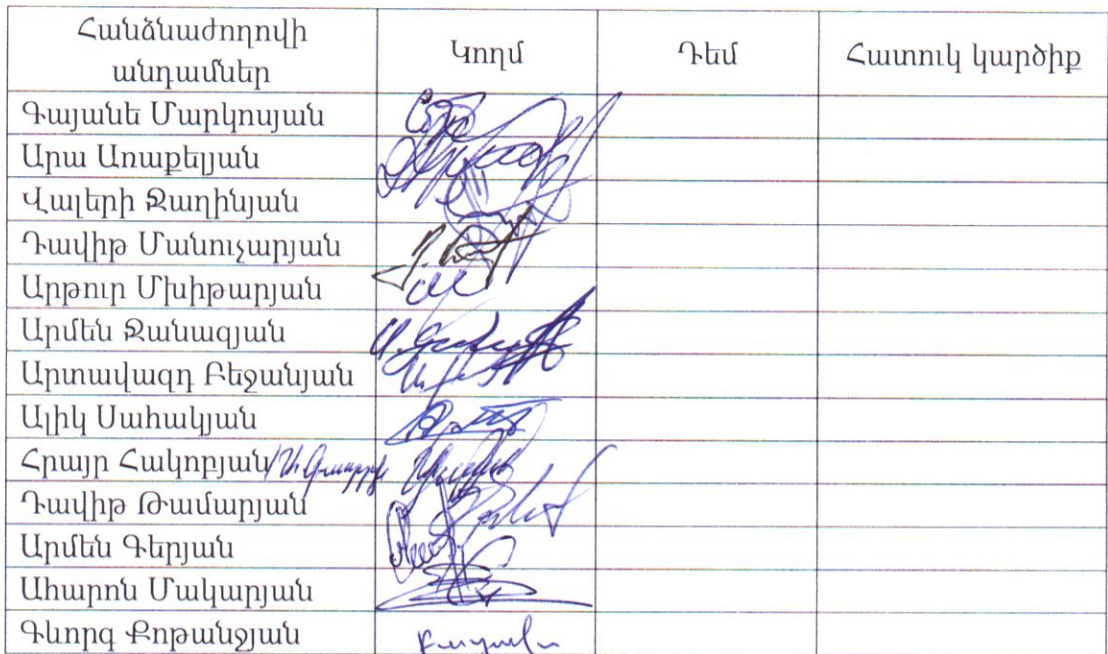 Հանձնաժողովի
անդամներ
Կողմ
Դեմ
Հատուկ կարծիք
Գայանե Մարկոսյան
Արա Առաքելյան
Վալերի Ջաղինյան
Դավիթ Մանուչարյան
Արթուր Մխիթարյան
Արմեն Ջանազյան
Արտավազդ Բեջանյան
Ալիկ Սահակյան
Հրայր Հակոբյան
Դավիթ Թամարյան
Արմեն Գերյան
Ահարոն Մակարյան
Գևորգ Քոթանջյան